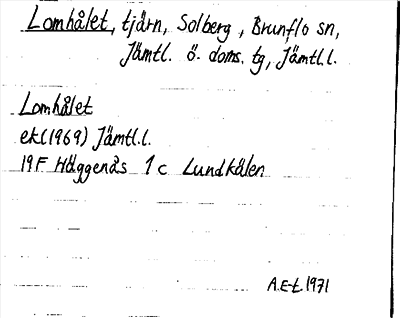 Lomhålet, tjärn, Solberg, Brunflo sn,
Jämtl. ö. doms. tg, Jämtl.l.
Lomhålet
ek(1969) Jämtl.l.
19F Häggenås 1c Lundkälen
A.E-t. 1971